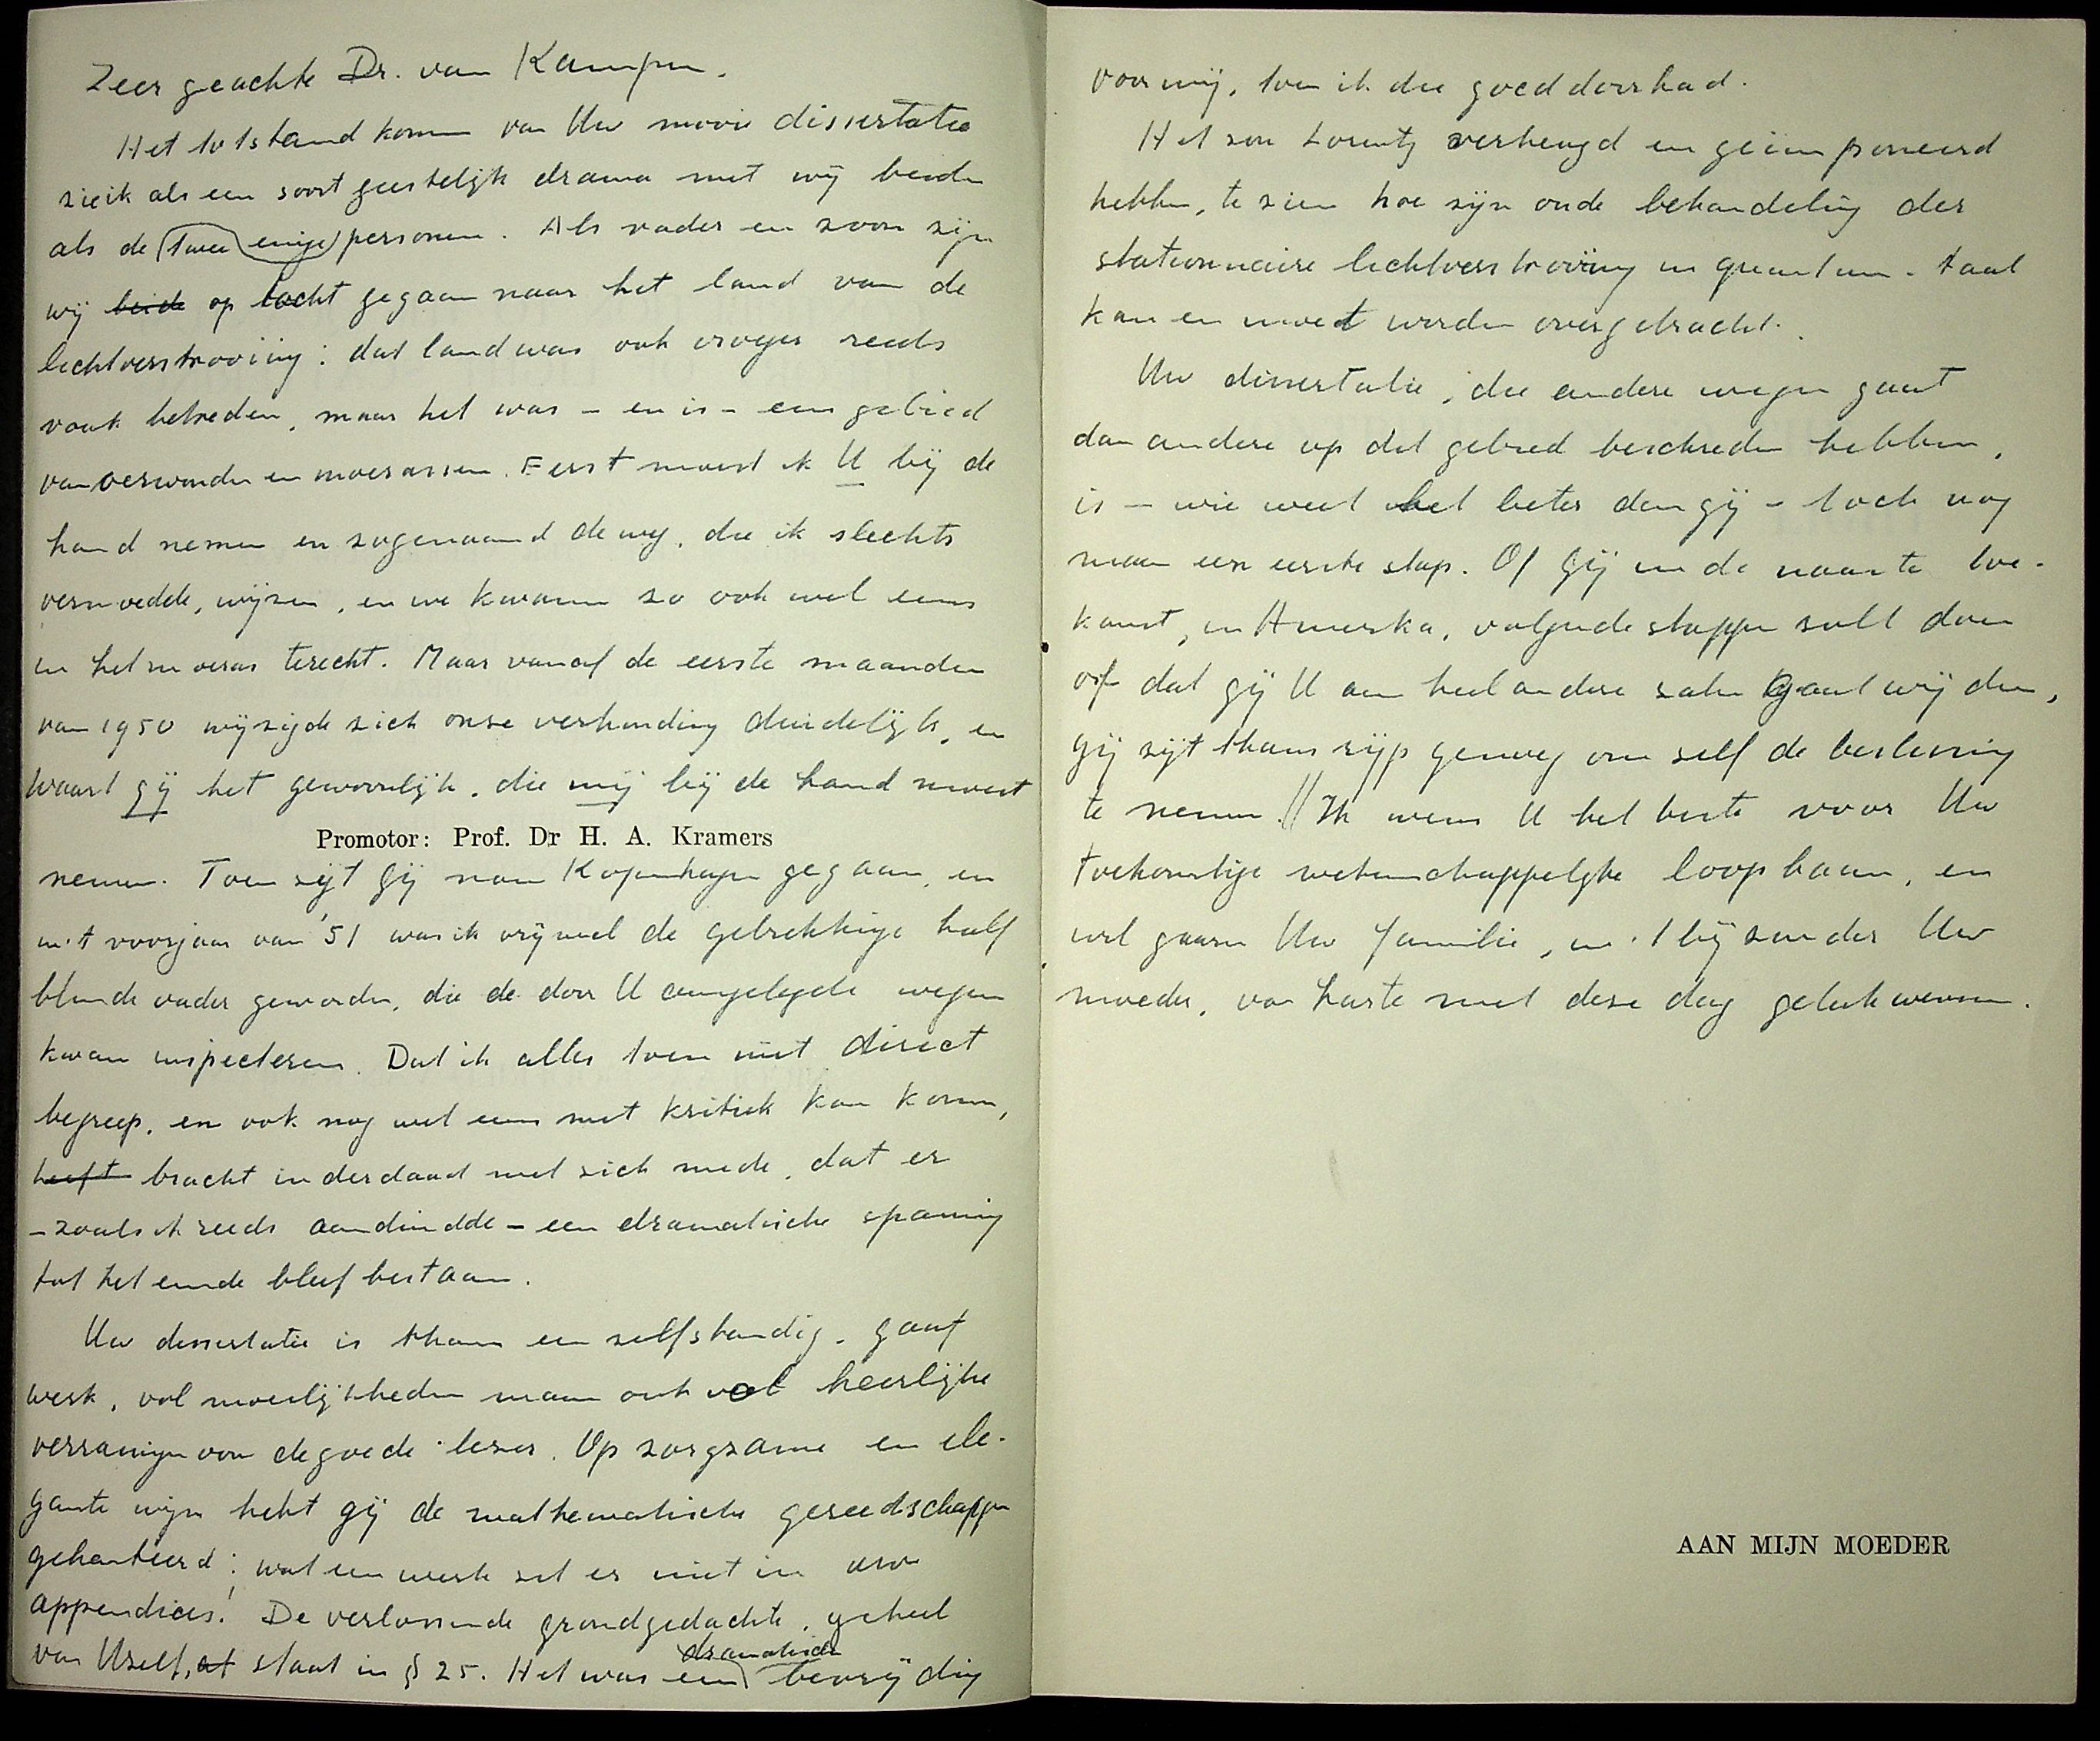 Zeer geachte Dr. van Kampen.
Het totstand komen van Uw mooie dissertatie
zie ik als een soort geestelijk drama met wij beiden
als de twee enige personen. Als vader en zoon zijn
wij beide op tocht gegaan naar het land van de
lichtverstrooiing: dat land was ook vroeger reeds
vaak betreden, maar het was – en is – een gebied
van oerwouden en moerassen. Eerst moest ik U bij de
hand nemen en zogenaamd de weg, die ik slechts
vermoedde, wijzen, en we kwamen zo ook wel eens
in het moeras terecht. Maar vanaf de eerste maanden
van 1950 wijzigde zich onze verhouding duidelijk, en
waart gij het gewoonlijk, die mij bij de hand moest
Promotor: Prof. Dr H. A. Kramers
nemen. Toen zijt gij naar Kopenhagen gegaan, en
in 't voorjaar van '51 was ik vrijwel de gebrekkige half
blinde vader geworden, die de door U aangelegde wegen
kwam inspecteren. Dat ik alles toen niet direct
begreep, en ook nog wel eens met kritiek kon komen,
heeft bracht inderdaad met zich mede, dat er
– zoals ik reeds aanduidde – een dramatische spanning
tot het einde bleef bestaan.
Uw dissertatie is thans een zelfstandig, gaaf
werk, vol moeilijkheden maar ook vol heerlijke
verrassingen voor de goede lezer. Op zorgzame en ele-
gante wijze hebt gij de mathematische gereedschappen
gehanteerd; wat een werk zit er niet in uw
appendices! De verlossende grondgedachte, geheel
van Uzelf, staat in § 25. Het was een dramatische bevrijding
voor mij, toen ik die goed doorhad.
Het zou Lorentz verheugd en geïmponeerd
hebben, te zien hoe zijn oude behandeling der
stationnaire lichtverstrooiing in quantum-taal
kan en moet worden overgebracht.
Uw dissertatie, die andere wegen gaat
dan andere op dit gebied beschreden hebben,
is – wie weet het beter dan gij – toch nog
maar een eerste stap. Of gij in de naaste toe-
komst, in Amerika, volgende stappen zult doen
of dat gij U aan heel andere zaken gaat wijden,
gij zijt thans rijp genoeg om zelf de beslissing
te nemen. // Ik wens U het beste voor Uw
toekomstige wetenschappelijke loopbaan, en
wil gaarne Uw familie, in 't bijzonder Uw
moeder, van harte met deze dag gelukwensen.
AAN MIJN MOEDER